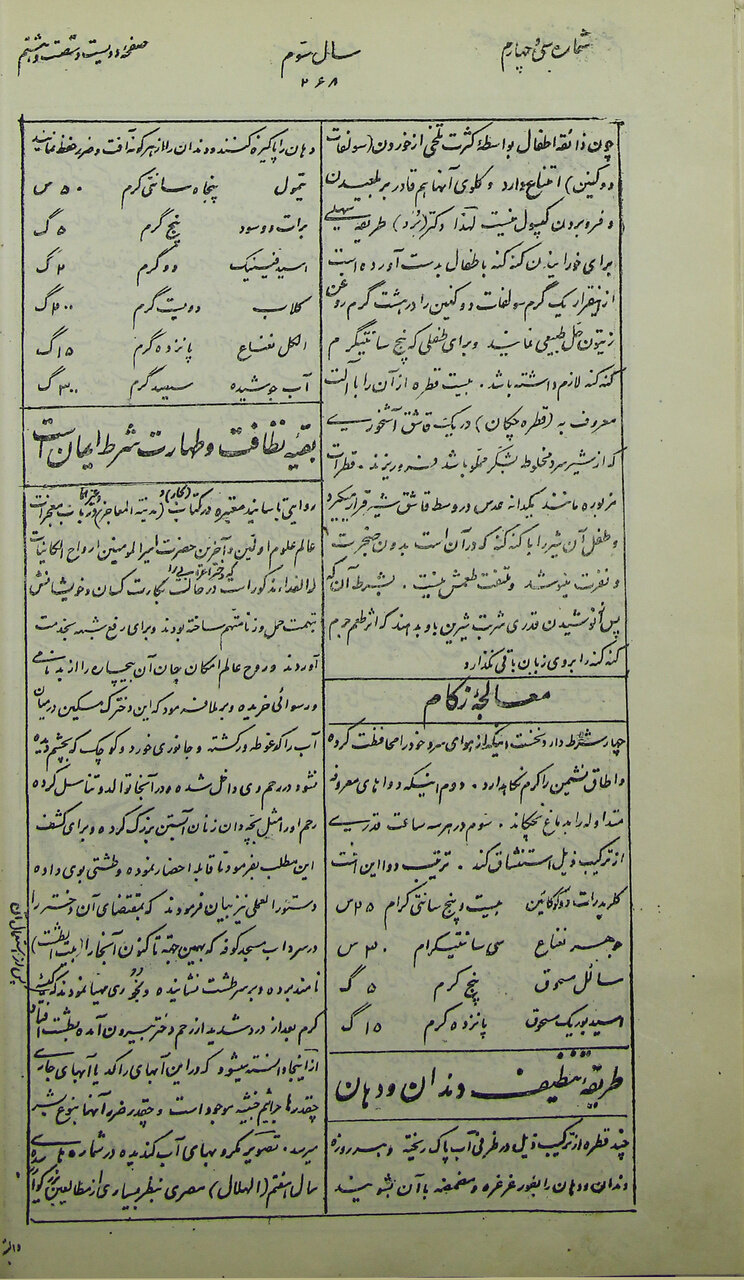 شماره سی و چهارم
سال سوم
صفحه دویست و شصت و هشتم
۲۶۸
چون ذائقه اطفال بواسطهٔ کثرت تلخی از خوردن (سولفات
دوکنین) امتناع دارد و گلوی آنها هم قادر بر بلعیدن
و فرو بردن کپسول نیست لهذا دکتر (برد) طریقه سهلی
برای خورانیدن کنه کنه باطفال بدست آورده است
ازینقرار یک گرم سولفات دوکنین را در هشت گرم روغن
زیتون حل طبیعی نمایند و برای طفلی که پنج سانتیگرم
کنه کنه لازم داشته باشد. بیست قطره از آن را با آلت
معروف به (قطره چکان) در یک قاشق آشخوری
که از شیر سرد مخلوط بشکر مملو باشد فرو ریزند. قطرات
مزبوره مانند یکدانه عدس در وسط قاشق شیر قرار میگیرد
و طفل آن شیر را با کنه کنه که در آن است بدون ضجرت
و نفرت مینوشد و ملتفت طعمش نیست. بشرط آن که
پس از نوشیدن قدری شربت شیرین باو بدهند که اثر طعم جرم
کنه کنه را بروی زبان باقی نگذارد
معالجهٔ زکام
چهار شرط دارد نخست اینکه از هوای سرد خود را محافظت کرده
و اطاق نشیمن را گرم نگاهدارد. دوم اینکه دواهای معروفه
متداوله را بدماغ نچکاند. سوم در هر سه ساعت قدری
از ترکیب ذیل استنشاق کند. ترتیب دوا این است
کلریدرات دوکوکائین بیست و پنج سانتی گرام ۲۵ س
جوهر نعناع سی سانتیگرام ۳۰ س
سالل مسحوق پنج گرم ۵ گ
اسید بوریک مسحوق پانزده گرم ۱۵ گ
طریقهٔ تنظیف دندان و دهان
چند قطره از ترکیب ذیل در ظرفی آب پاک ریخته و همه روزه
دندان و دهان را بفور غرغره و مضمضه با آن بشویند
دهان را پاکیزه کنند و دندان را از هر گونه آفت و ضرر حفظ نمایند
تیمول پنجاه سانتی گرم ۵۰ س
برات دو سود پنج گرم ۵ گ
اسید فینیک دو گرم ۲ گ
گلاب دویست گرم ۲۰۰ گ
الکل نعناع پانزده گرم ۱۵ گ
آب جوشیده سیصد گرم ۳۰۰ گ
بقیهٔ نظافت و طهارت شرط ایمان است
روایتی باسانید معتبره در کتاب (بحار) و (مدینة المعاجز) در باب معجزات
عالم علوم اولین و آخرین حضرت امیر المومنین ارواح الکائنات
له الفداء مذکور است که دختر اعرابی را در حالت بکارت کسان و خویشانش
بتهمت حمل و زنا متهم ساخته بودند و برای رفع شبهه بخدمت
آوردند و روح عالم امکان جان آن بیچاره را از بدنامی
و رسوائی خریده و بر ملا نمود که این دخترک مسکین در میان
آب راکد غوطه ور گشته و جانوری خورد و کوچک که بچشم دیده
نشود در رحم وی داخل شده و در آنجا توالد و تناسل کرده
رحم او را مثل بچه دان زنان آبستن بزرگ کرده و برای کشف
این مطلب بفرمود تا قابله احضار نموده و طشتی بوی داده
دستور العملی نیز بیان فرمودند که بمقتضای آن دختر را
در سرداب مسجد کوفه که بهمین جهة تا کنون آنجا را (بیت الطشت)
نامند برده و بر سر طشت نشانیده و بخوری مهیا نمودند که یک
کرم بعد از درد شدید از رحم دختر بیرون آمده بطشت افتاد
از اینجا دانسته میشود که در این آبهای راکد یا آبهای جاری
چقدرها جراثیم خبیثه موجود است و چقدر ضرر آنها بنوع بشر
میرسد. تصویر مکروبهای آب گندیده در شماره
سال هفتم (الهلال) مصری بنظر بسیاری از مطالعین
پس از استعمال آن